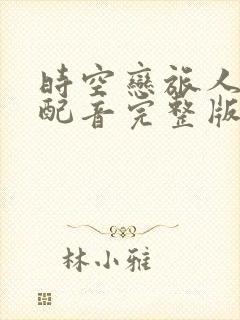 時空戀旅人
配音完整版
林小雅